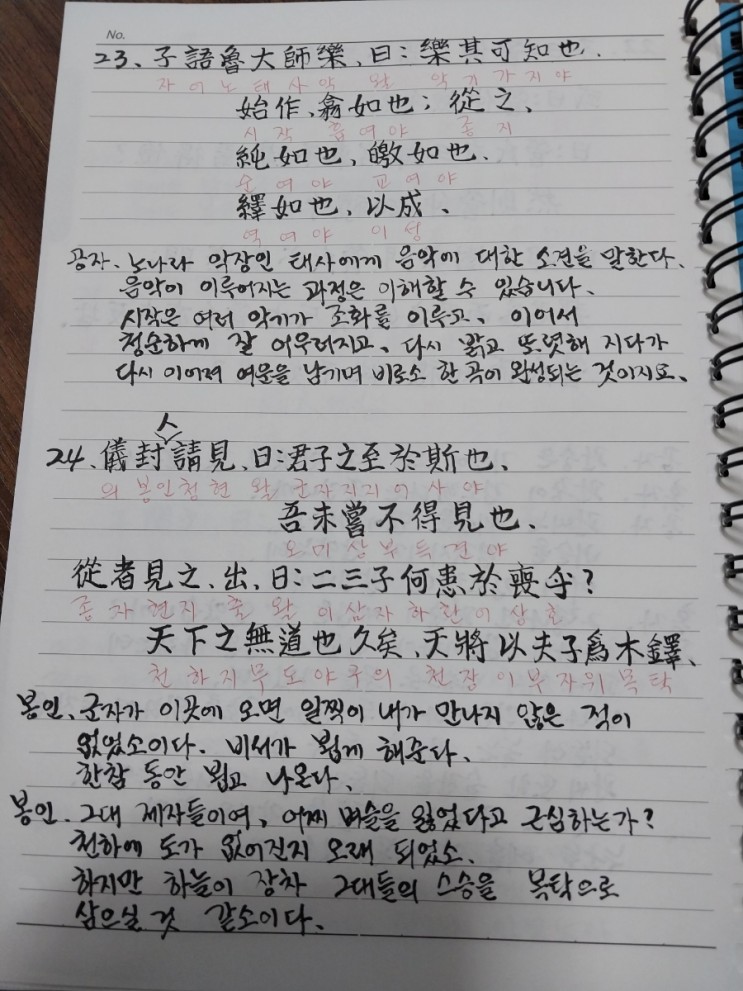 No.
23、子語魯大師樂、曰：樂其可知也．
자 어 노 태 사 악 왈 악 기 가 지 야
始作、翕如也；從之、
시 작 흡 여 야 종 지
純如也，皦如也．
순 여 야 교 여 야
繹如也，以成、
역 여 야 이 성
공자. 노나라 악장인 태사에게 음악에 대한 소견을 말한다.
음악이 이루어지는 과정은 이해할 수 있습니다.
시작은 여러 악기가 조화를 이루고、이어서
청순하게 잘 어우러지고、다시 맑고 또렷해 지다가
다시 이어져 여운을 남기며 비로소 한 곡이 완성되는 것이지요、
24、儀封人請見、曰：君子之至於斯也、
의 봉인청현 왈 군자지지어사야
吾未嘗不得見也、
오미상부득견야
從者見之、出、曰：二三子何患於喪乎？
종 자현지 출 왈 이삼자하환어상호
天下之無道也久矣、天將以夫子爲木鐸、
천하지무도야구의 천장이부자위목탁
봉인、군자가 이곳에 오면 일찍이 내가 만나지 않은 적이
없었소이다. 비서가 뵙게 해준다.
한참 동안 뵙고 나온다、
봉인. 그대 제자들이여、어찌 벼슬을 잃었다고 근심하는가?
천하에 도가 없어진지 오래 되었소.
하지만 하늘이 장차 그대들의 스승을 목탁으로
삼으실 것 같소이다、